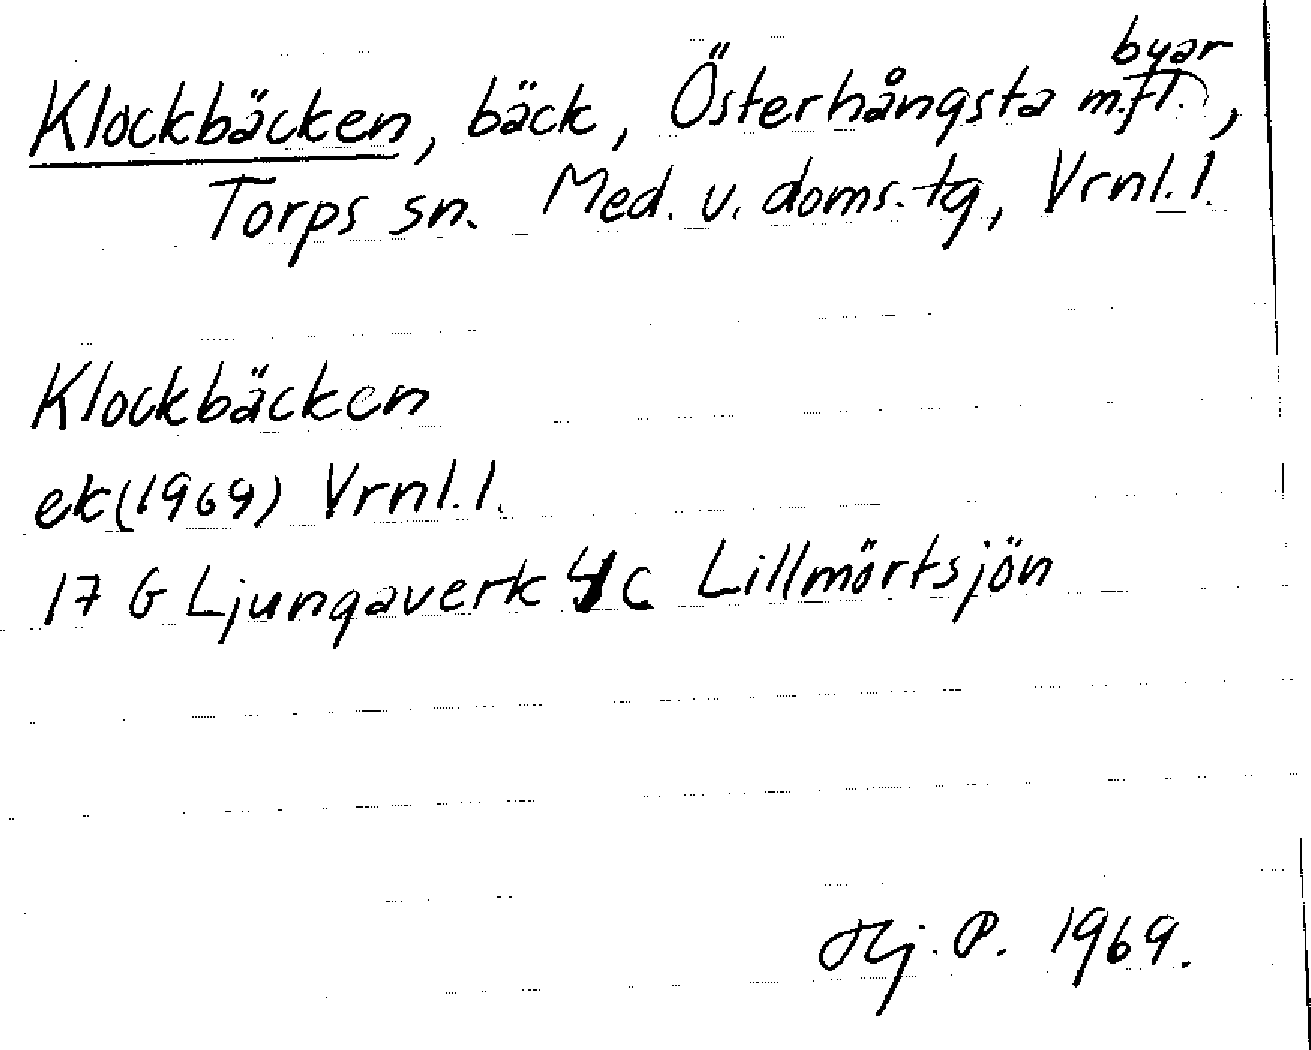 Klockbäcken, bäck, Österhångsta m.fl. byar,
Torps sn. Med. v. doms. tg, Vrnl. l.
Klockbäcken
ek(1969) Vrnl. l.
17 G Ljungaverk 4 c Lillmörtsjön
Hj. P. 1969.